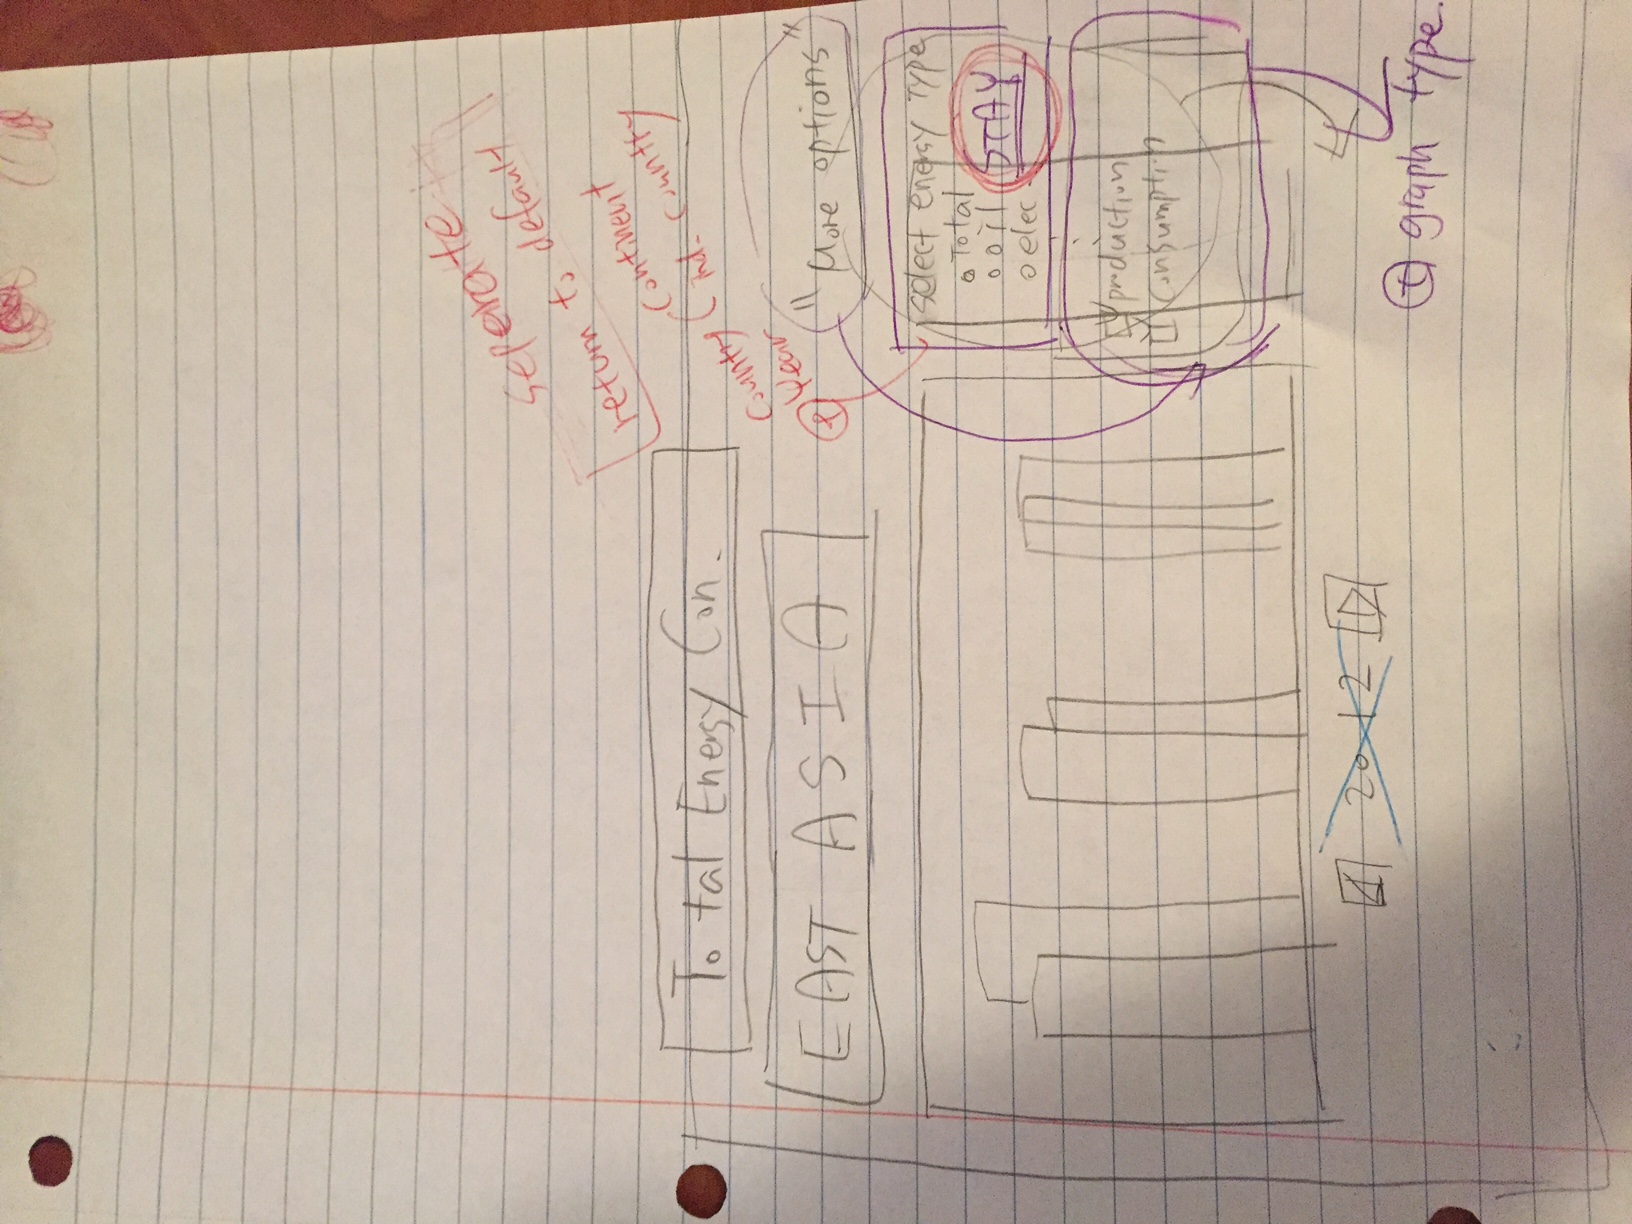 seperate
return to default
Continent
Country ind. country
⊕ Year
Total Energy Con.
EAST ASIA
"More options"
select energy type
Total
oil
elec
STAY
production
consumption
2012
⊕ graph type.